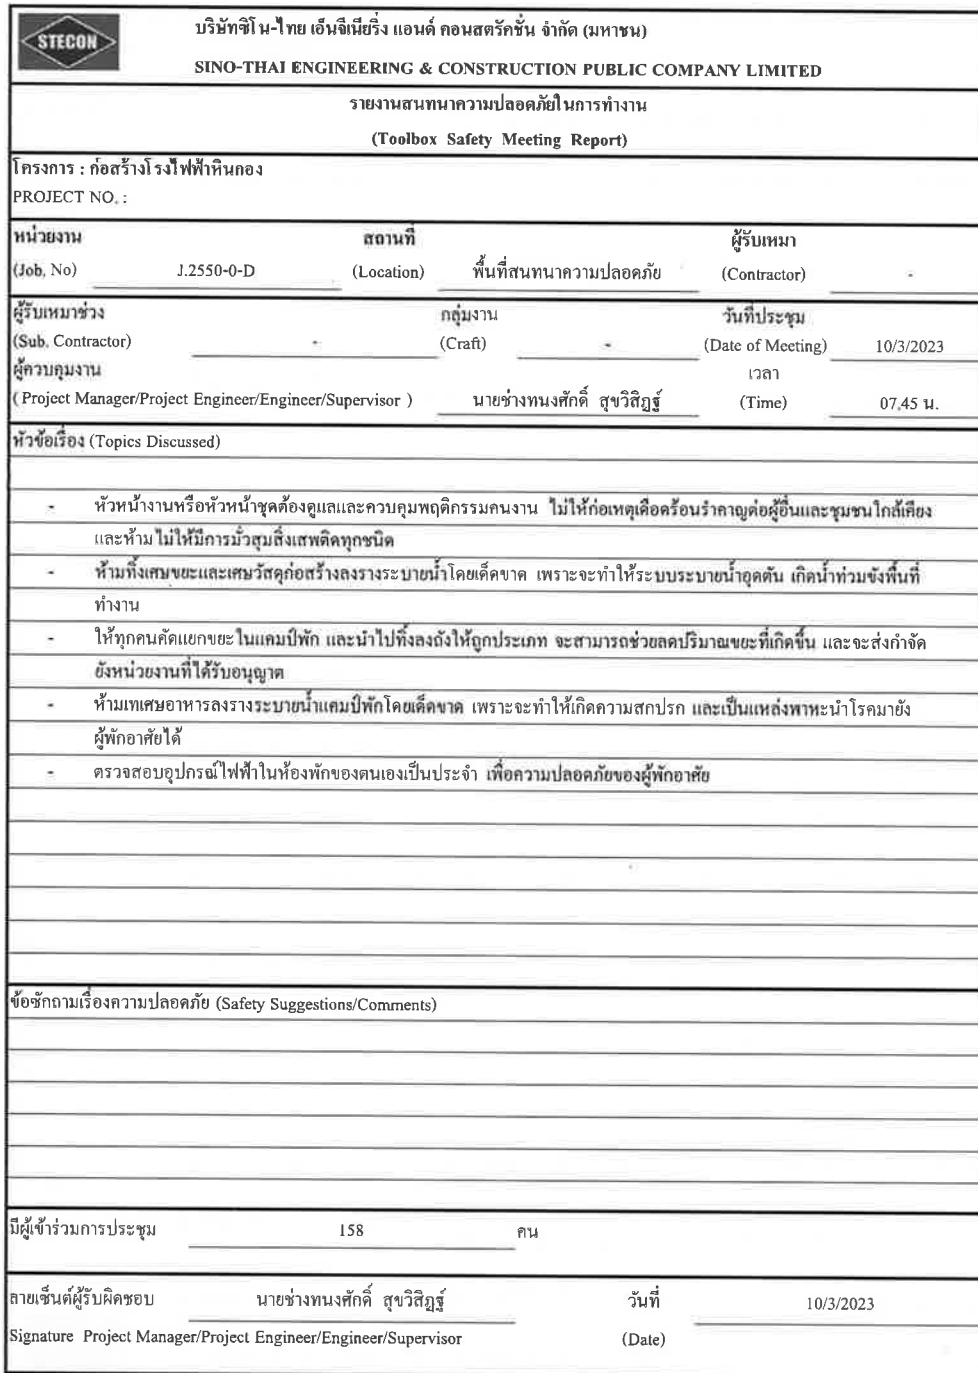 STECON
บริษัทซิโน-ไทย เอ็นจีเนียริ่ง แอนด์ คอนสตรัคชั่น จำกัด (มหาชน)
SINO-THAI ENGINEERING & CONSTRUCTION PUBLIC COMPANY LIMITED
รายงานสนทนาความปลอดภัยในการทำงาน
(Toolbox Safety Meeting Report)
โครงการ : ก่อสร้างโรงไฟฟ้าหินกอง
PROJECT NO. :
หน่วยงาน สถานที่ ผู้รับเหมา
(Job. No) J.2550-0-D (Location) พื้นที่สนทนาความปลอดภัย (Contractor) -
ผู้รับเหมาช่วง กลุ่มงาน วันที่ประชุม
(Sub. Contractor) - (Craft) - (Date of Meeting) 10/3/2023
ผู้ควบคุมงาน เวลา
( Project Manager/Project Engineer/Engineer/Supervisor ) นายช่างทนงศักดิ์ สุขวิสิฏฐ์ (Time) 07.45 น.
หัวข้อเรื่อง (Topics Discussed)
- หัวหน้างานหรือหัวหน้าชุดต้องดูแลและควบคุมพฤติกรรมคนงาน ไม่ให้ก่อเหตุเดือดร้อนรำคาญต่อผู้อื่นและชุมชนใกล้เคียง
และห้ามไม่ให้มีการมั่วสุมสิ่งเสพติดทุกชนิด
- ห้ามทิ้งเศษขยะและเศษวัสดุก่อสร้างลงรางระบายน้ำโดยเด็ดขาด เพราะจะทำให้ระบบระบายน้ำอุดตัน เกิดน้ำท่วมขังพื้นที่
ทำงาน
- ให้ทุกคนคัดแยกขยะในแคมป์พัก และนำไปทิ้งลงถังให้ถูกประเภท จะสามารถช่วยลดปริมาณขยะที่เกิดขึ้น และจะส่งกำจัด
ยังหน่วยงานที่ได้รับอนุญาต
- ห้ามเทเศษอาหารลงรางระบายน้ำแคมป์พักโดยเด็ดขาด เพราะจะทำให้เกิดความสกปรก และเป็นแหล่งพาหะนำโรคมายัง
ผู้พักอาศัยได้
- ตรวจสอบอุปกรณ์ไฟฟ้าในห้องพักของตนเองเป็นประจำ เพื่อความปลอดภัยของผู้พักอาศัย
ข้อซักถามเรื่องความปลอดภัย (Safety Suggestions/Comments)
มีผู้เข้าร่วมการประชุม 158 คน
ลายเซ็นต์ผู้รับผิดชอบ นายช่างทนงศักดิ์ สุขวิสิฏฐ์ วันที่ 10/3/2023
Signature Project Manager/Project Engineer/Engineer/Supervisor (Date)